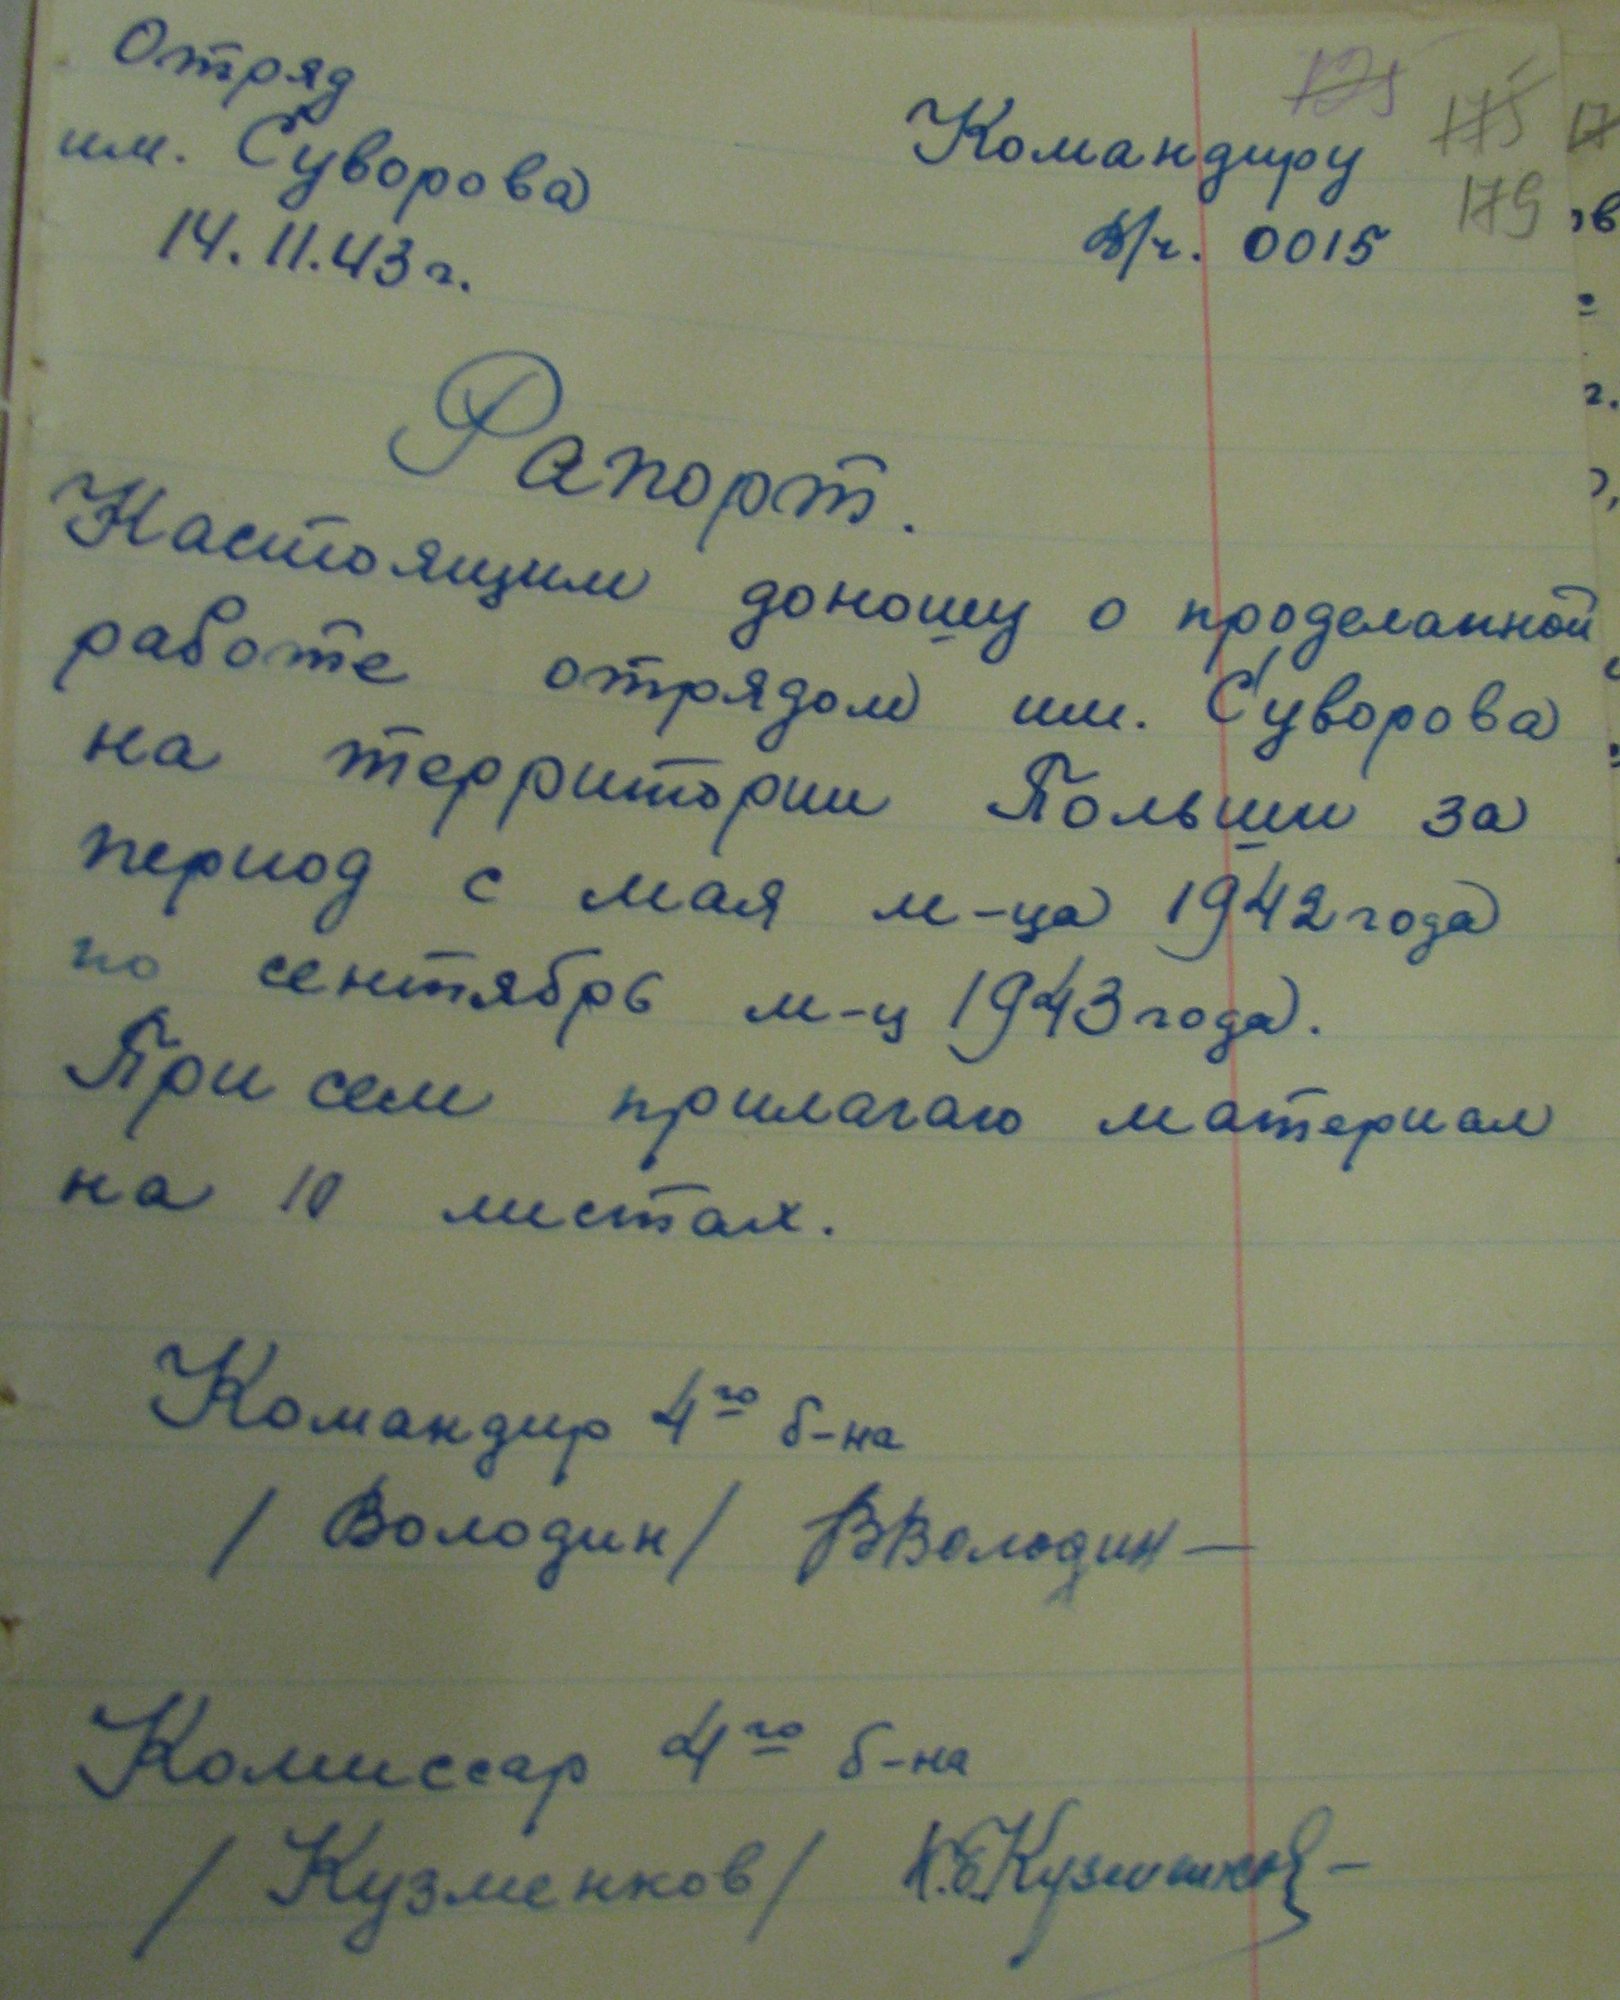 Отряд
им. Суворова
14.11.43 г.
175
179
Командиру
в/ч. 0015
Рапорт.
Настоящим доношу о проделанной
работе отрядом им. Суворова
на территории Польши за
период с мая м-ца 1942 года
по сентябрь м-ц 1943 года.
При сем прилагаю материал
на 10 листах.
Командир 4го б-на
/ Володин / ВВолодин
Комиссар 4го б-на
/ Кузменков / Кузменков